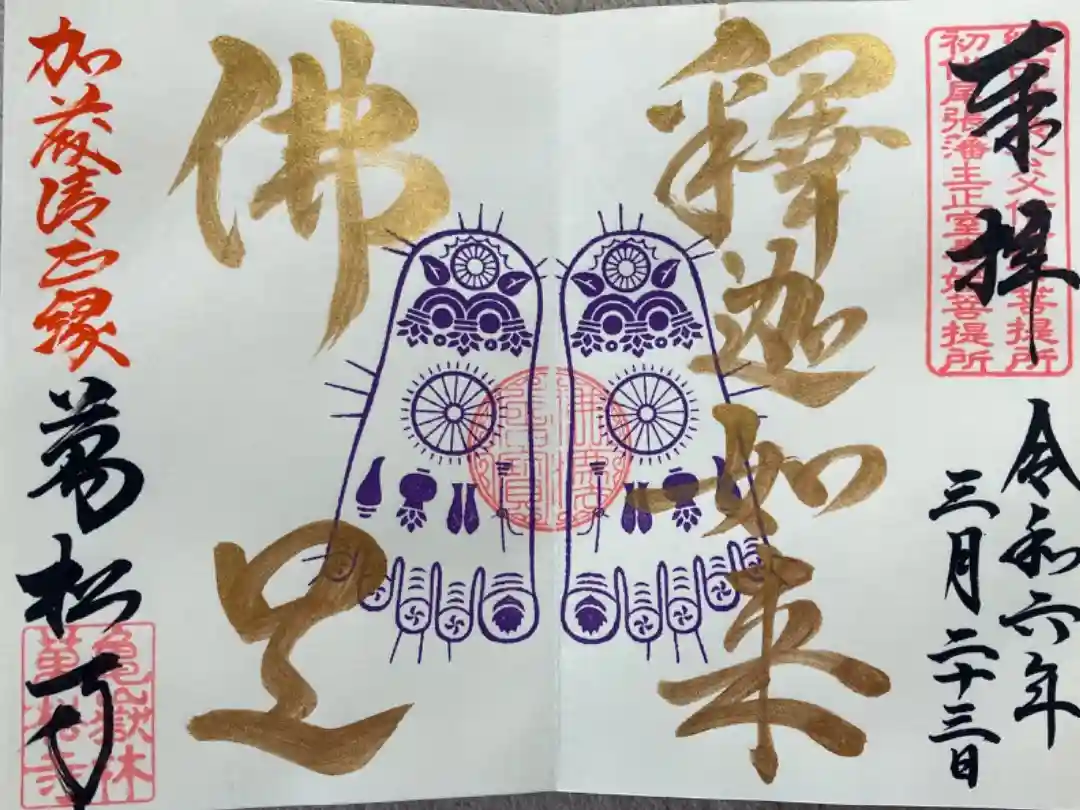 奉拝
織田信長父信秀菩提所
初代尾張藩主正室春姫菩提所
令和六年
三月二十三日
釋迦如来
佛足
加藤清正縁
萬松寺
亀嶽林
萬松寺